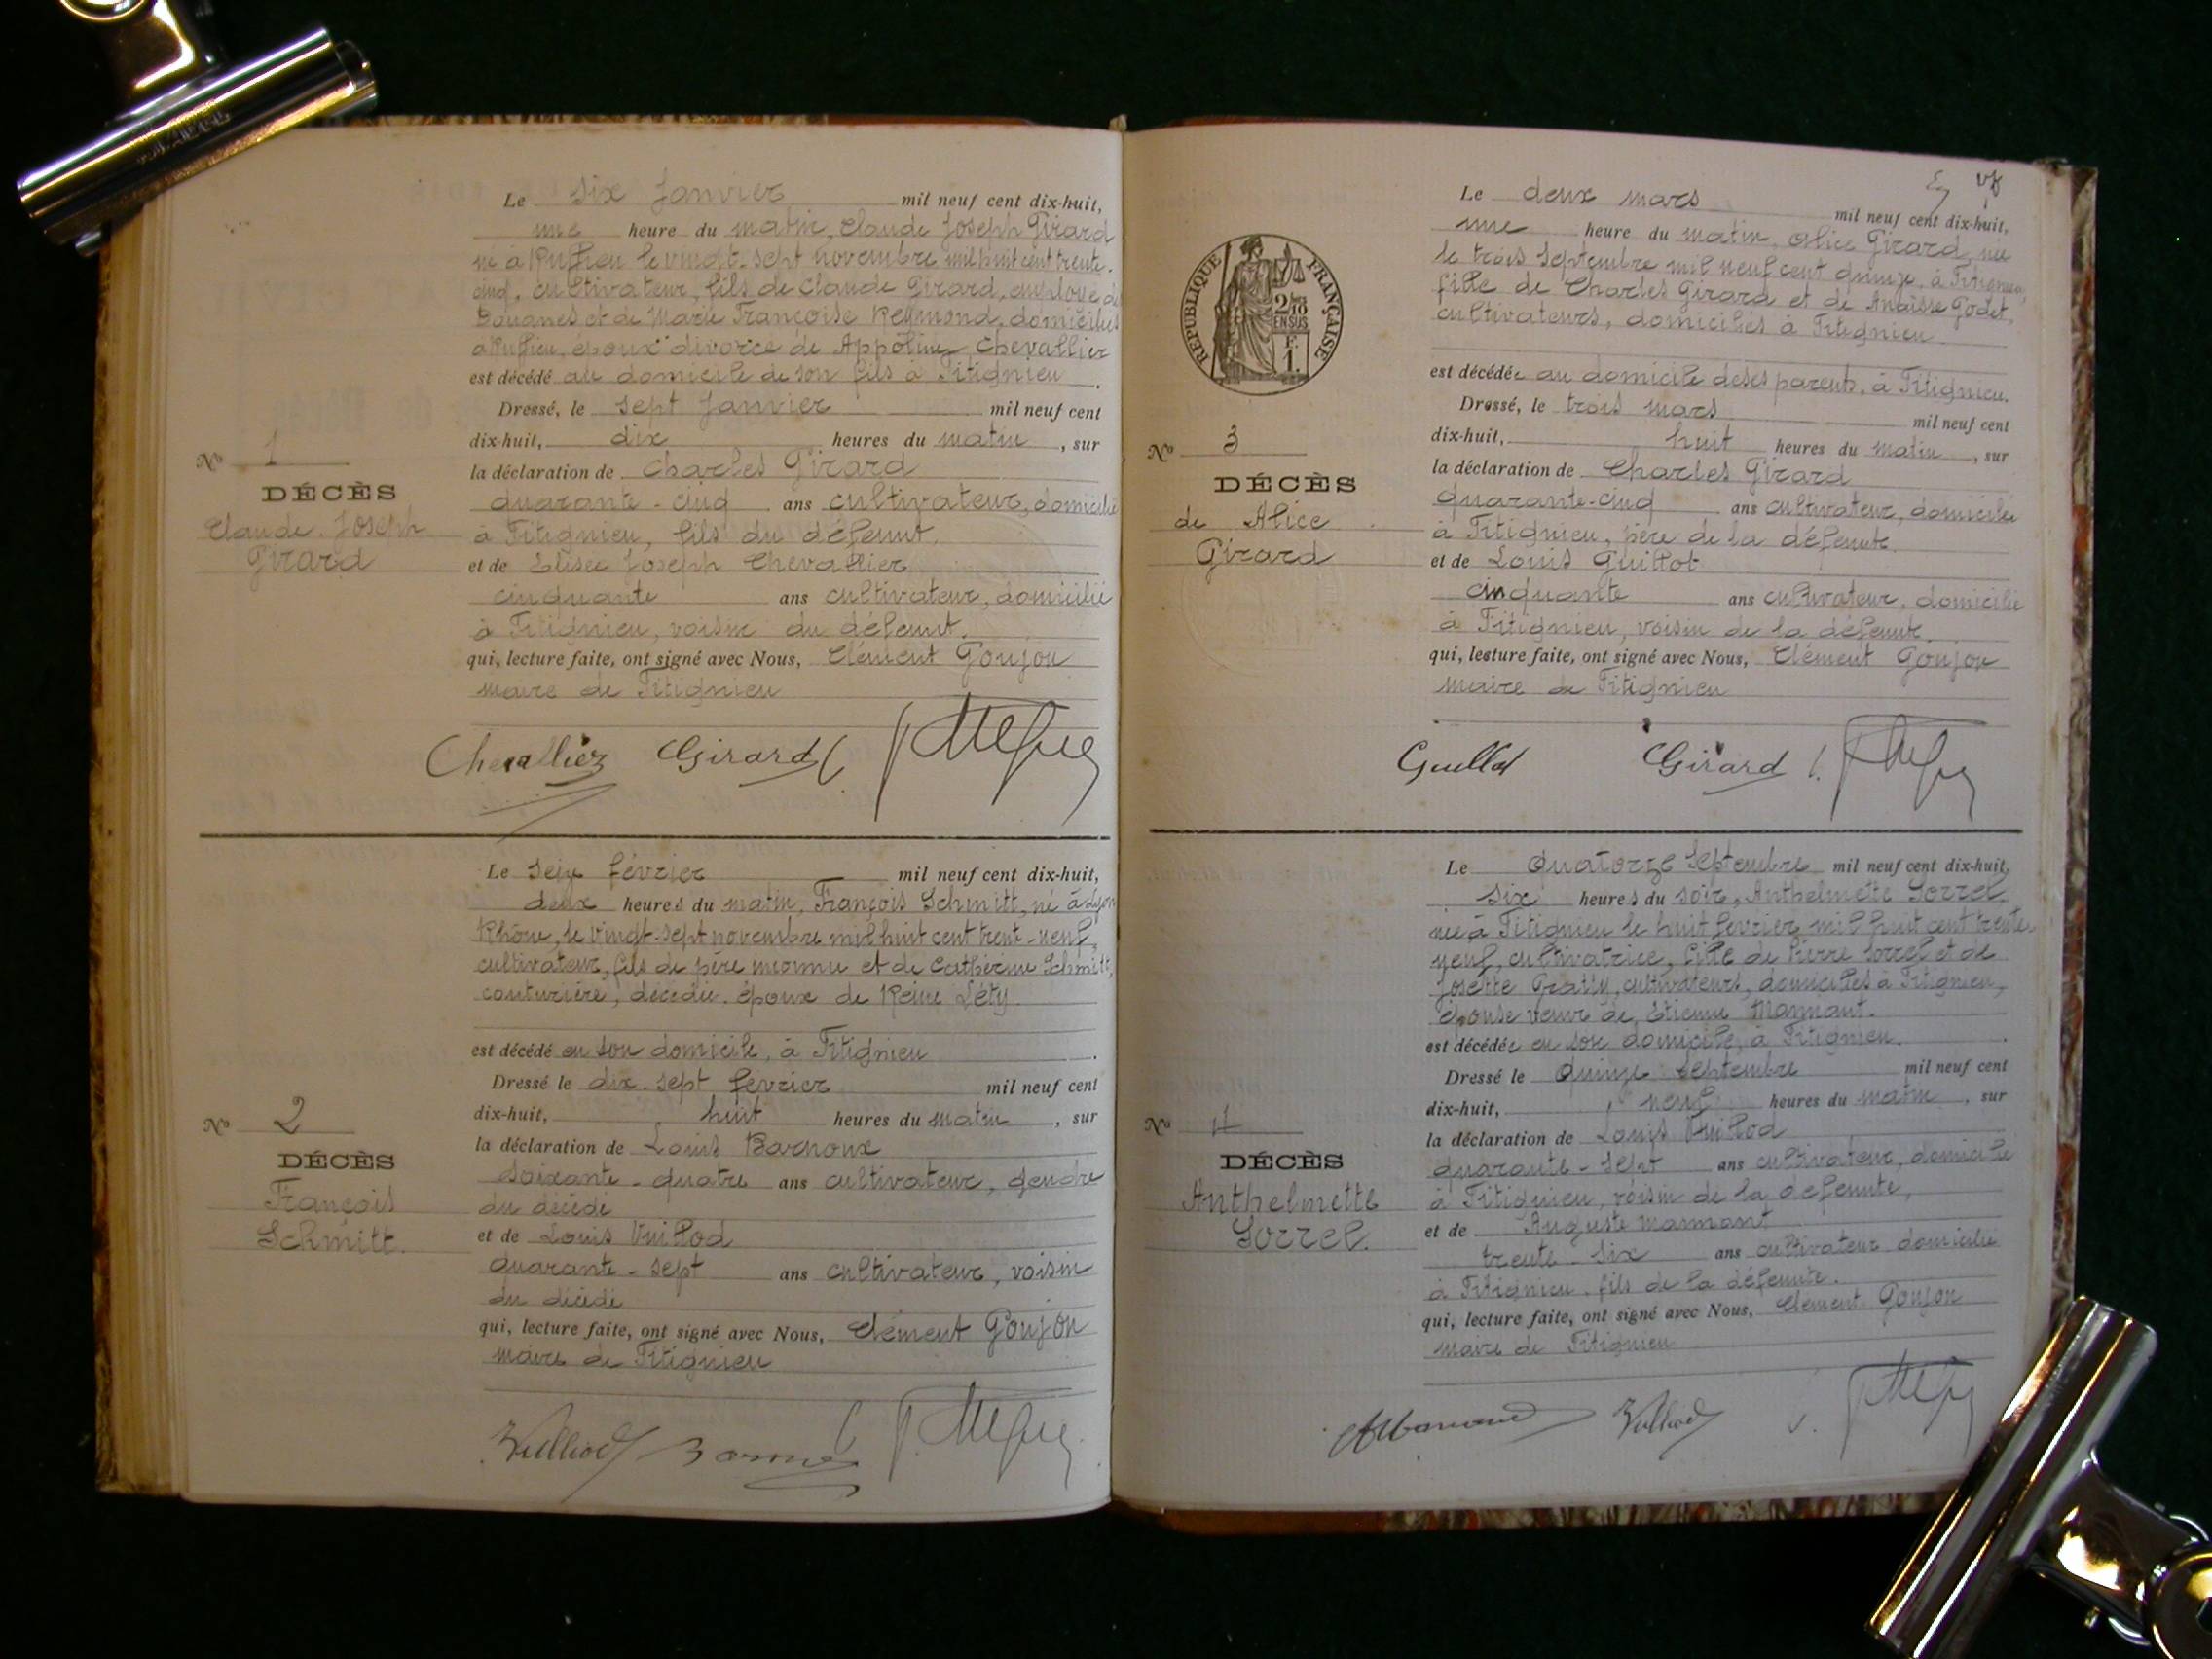 Le six Janvier mil neuf cent dix-huit,
une heure du matin, Claude Joseph Girard
né à Ruffieu le vingt-sept novembre mil huit cent trente-
cinq, cultivateur, fils de Claude Girard, employé de
Douanes et de Marie Françoise Reymond, domiciliés
à Ruffieu, époux divorcé de Appoline Chevallier
est décédé au domicile de son fils à Fitignieu.
Dressé, le sept Janvier mil neuf cent
dix-huit, dix heures du matin, sur
la déclaration de Charles Girard
quarante-cinq ans cultivateur, domicilié
à Fitignieu, fils du défunt.
et de Elisée Joseph Chevallier
cinquante ans cultivateur, domicilié
à Fitignieu, voisin du défunt.
qui, lecture faite, ont signé avec Nous, Clément Goujon
maire de Fitignieu
No 1
DÉCÈS
Claude-Joseph
Girard
Chevallier Girard C.
Le seize février mil neuf cent dix-huit,
deux heures du matin, François Schmitt, né à Lyon
Rhône, le vingt-sept novembre mil huit cent trent-neuf,
cultivateur, fils de père inconnu et de Catherine Schmitt,
couturière, décédée. époux de Reine Léty
est décédé en son domicile, à Fitignieu.
Dressé le dix-sept février mil neuf cent
dix-huit, huit heures du matin, sur
la déclaration de Louis Barnoux
soixante-quatre ans cultivateur, gendre
du décédé
et de Louis Vuillod
quarante-sept ans cultivateur, voisin
du décédé
qui, lecture faite, ont signé avec Nous, Clément Goujon
maire de Fitignieu
No 2
DÉCÈS
François
Schmitt.
Vulliod
Le deux mars mil neuf cent dix-huit,
une heure du matin, Alice Girard, née
le trois Septembre mil neuf cent quinze, à Fitignieu,
fille de Charles Girard et de Anaïsse Godet,
cultivateurs, domiciliés à Fitignieu
est décédée au domicile de ses parents, à Fitignieu.
Dressé, le trois mars mil neuf cent
dix-huit, huit heures du matin, sur
la déclaration de Charles Girard
quarante-cinq ans cultivateur, domicilié
à Fitignieu, père de la défunte.
et de Louis Guillot
cinquante ans cultivateur, domicilié
à Fitignieu, voisin de la défunte.
qui, lecture faite, ont signé avec Nous, Clément Goujon
maire de Fitignieu
RÉPUBLIQUE FRANÇAISE
2/10
EN SUS
F.
1.
No 3
DÉCÈS
de Alice
Girard
Guillot Girard C.
Le quatorze Septembre mil neuf cent dix-huit,
six heures du soir, Anthelmette Sorrel
née à Fitignieu le huit février mil huit cent trente-
neuf, cultivatrice, fille de Pierre Sorrel et de
Josette cultivateurs, domiciliés à Fitignieu,
épouse veuve de Etienne Marmant.
est décédée en son domicile, à Fitignieu.
Dressé le quinze Septembre mil neuf cent
dix-huit, neuf heures du matin, sur
la déclaration de Louis Vuillod
quarante-sept ans cultivateur, domicilié
à Fitignieu, voisin de la défunte,
et de Auguste Marmant
trente-six ans cultivateur domicilié
à Fitignieu, fils de la défunte.
qui, lecture faite, ont signé avec Nous, Clément Goujon
maire de Fitignieu
No 4
DÉCÈS
Anthelmette
Sorrel.
Vulliod